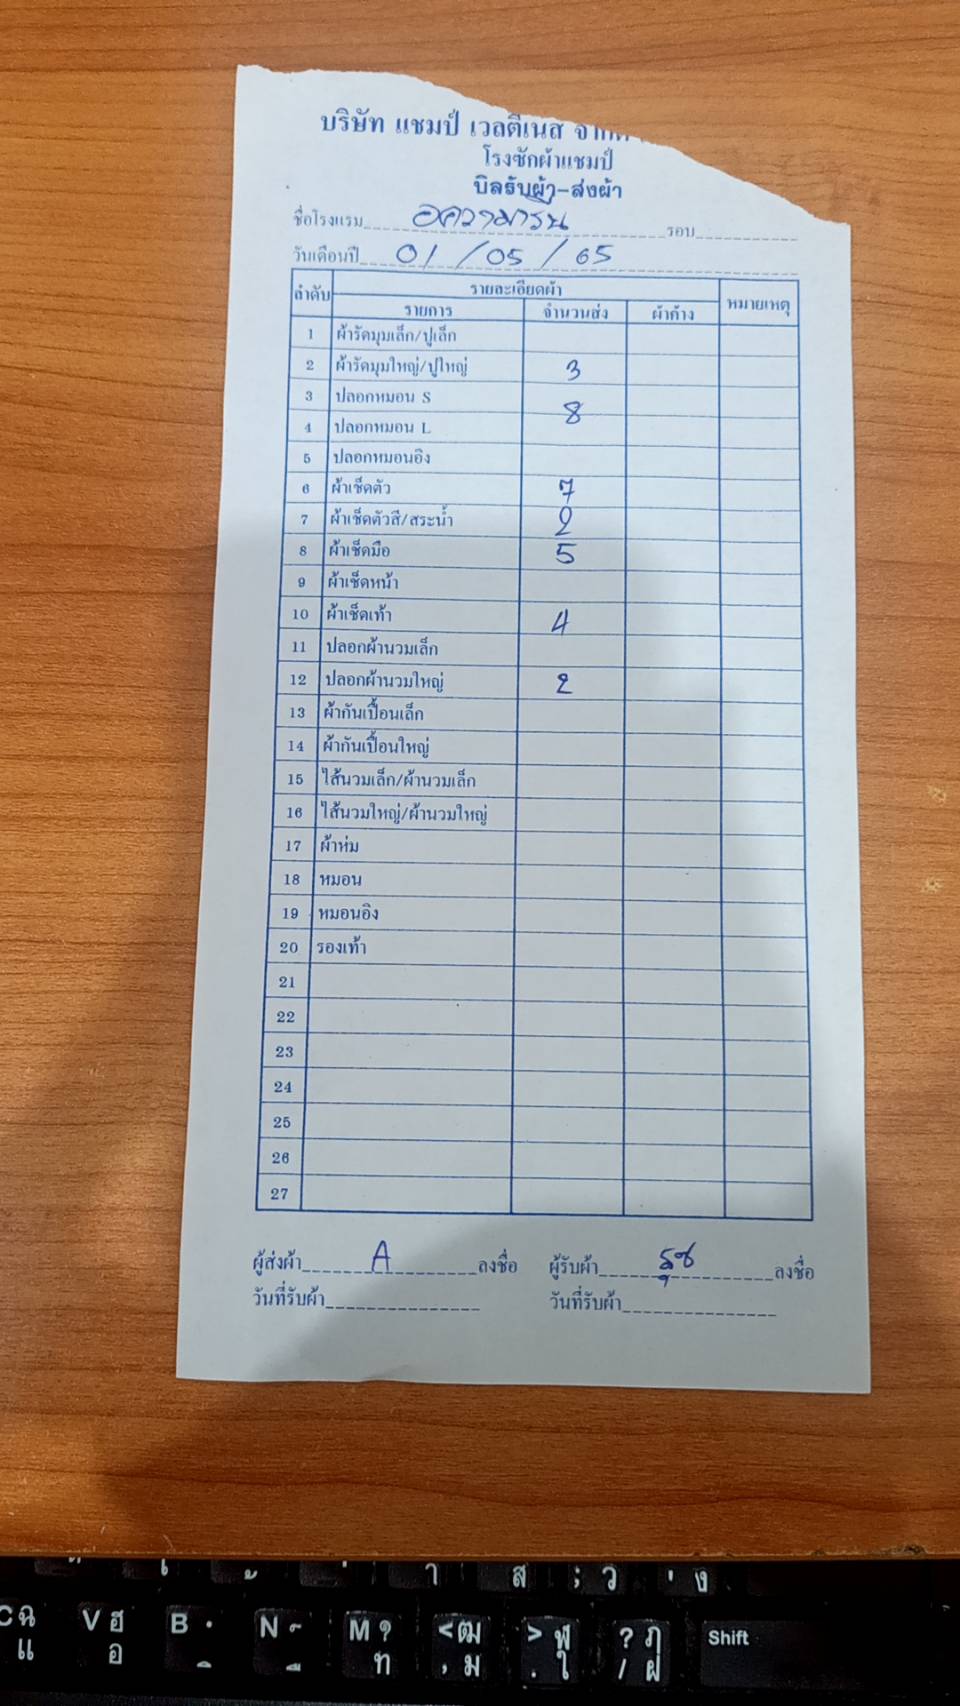 บริษัท แชมป์ เวลตี้เนส จำกัด
โรงซักผ้าแชมป์
บิลรับผ้า-ส่งผ้า
ชื่อโรงแรม อความารีน รอบ
วันเดือนปี 01/05/65
ลำดับ รายละเอียดผ้า หมายเหตุ
รายการ จำนวนส่ง ผ้าค้าง
1 ผ้ารัดมุมเล็ก/ปูเล็ก
2 ผ้ารัดมุมใหญ่/ปูใหญ่ 3
3 ปลอกหมอน S
8
4 ปลอกหมอน L
5 ปลอกหมอนอิง
6 ผ้าเช็ดตัว 7
7 ผ้าเช็ดตัวสี/สระน้ำ 2
8 ผ้าเช็ดมือ 5
9 ผ้าเช็ดหน้า
10 ผ้าเช็ดเท้า 4
11 ปลอกผ้านวมเล็ก
12 ปลอกผ้านวมใหญ่ 2
13 ผ้ากันเปื้อนเล็ก
14 ผ้ากันเปื้อนใหญ่
15 ไส้นวมเล็ก/ผ้านวมเล็ก
16 ไส้นวมใหญ่/ผ้านวมใหญ่
17 ผ้าห่ม
18 หมอน
19 หมอนอิง
20 รองเท้า
21
22
23
24
25
26
27
ผู้ส่งผ้า A ลงชื่อ ผู้รับผ้า ลงชื่อ
วันที่รับผ้า วันที่รับผ้า
า ส ; ว ' ง
C ฉ V ฮ B N M ? < ฒ > ฬ ? ฦ Shift
แ อ ท , ม . ใ / ฝ